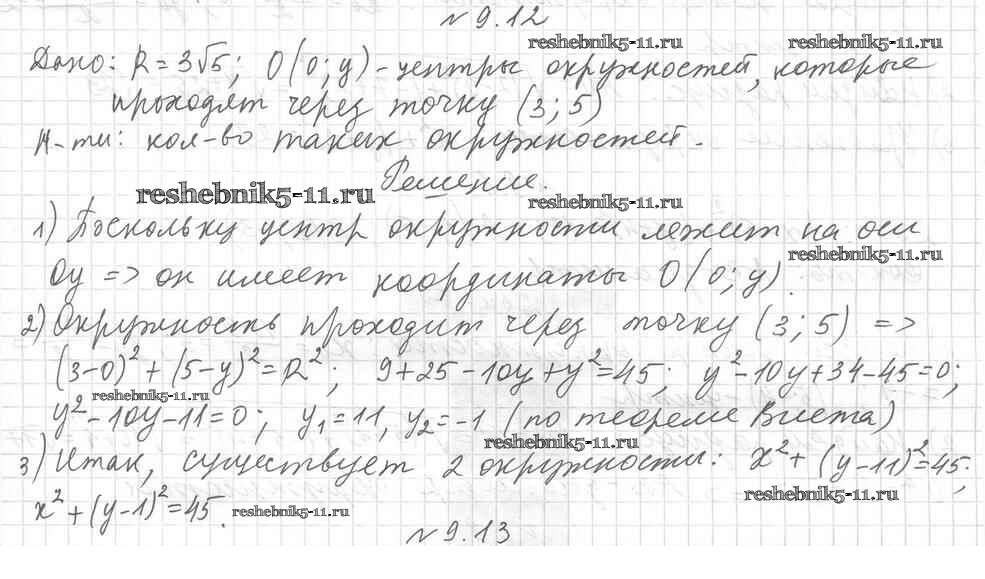 № 9.12
Дано: R = 3√5; O(0; y) - центры окружностей, которые
reshebnik5-11.ru reshebnik5-11.ru
проходят через точку (3; 5)
Н-ти: кол-во таких окружностей.
Решение.
reshebnik5-11.ru reshebnik5-11.ru
1) Поскольку центр окружности лежит на оси
reshebnik5-11.ru
Oy => он имеет координаты O(0; y).
2) Окружность проходит через точку (3; 5) =>
(3-0)² + (5-y)² = R²; 9+25-10y+y²=45; y²-10y+34-45=0;
reshebnik5-11.ru
y²-10y-11=0; y₁=11, y₂=-1 (по теореме Виета)
reshebnik5-11.ru
3) Итак, существует 2 окружности: x²+(y-11)²=45;
reshebnik5-11.ru
x²+(y-1)²=45.
reshebnik5-11.ru
№ 9.13